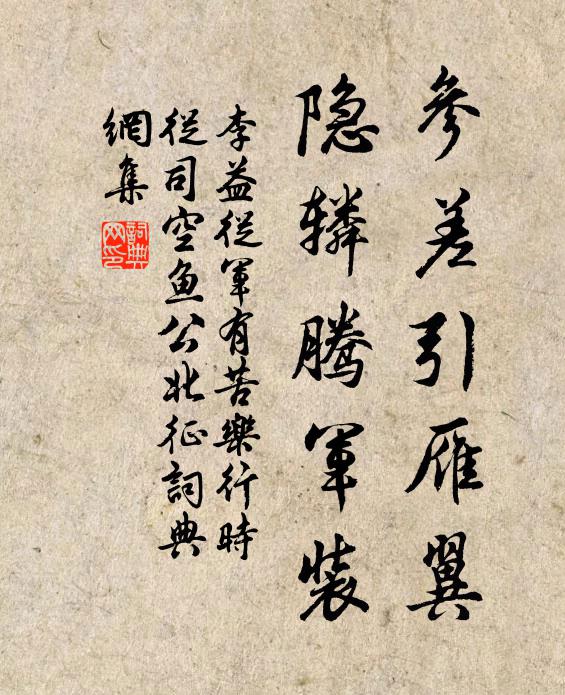 參差引雁翼
隐辚腾军装
李益從軍有苦樂行時
從司空魚公北征詞典
網集
詞典
网印